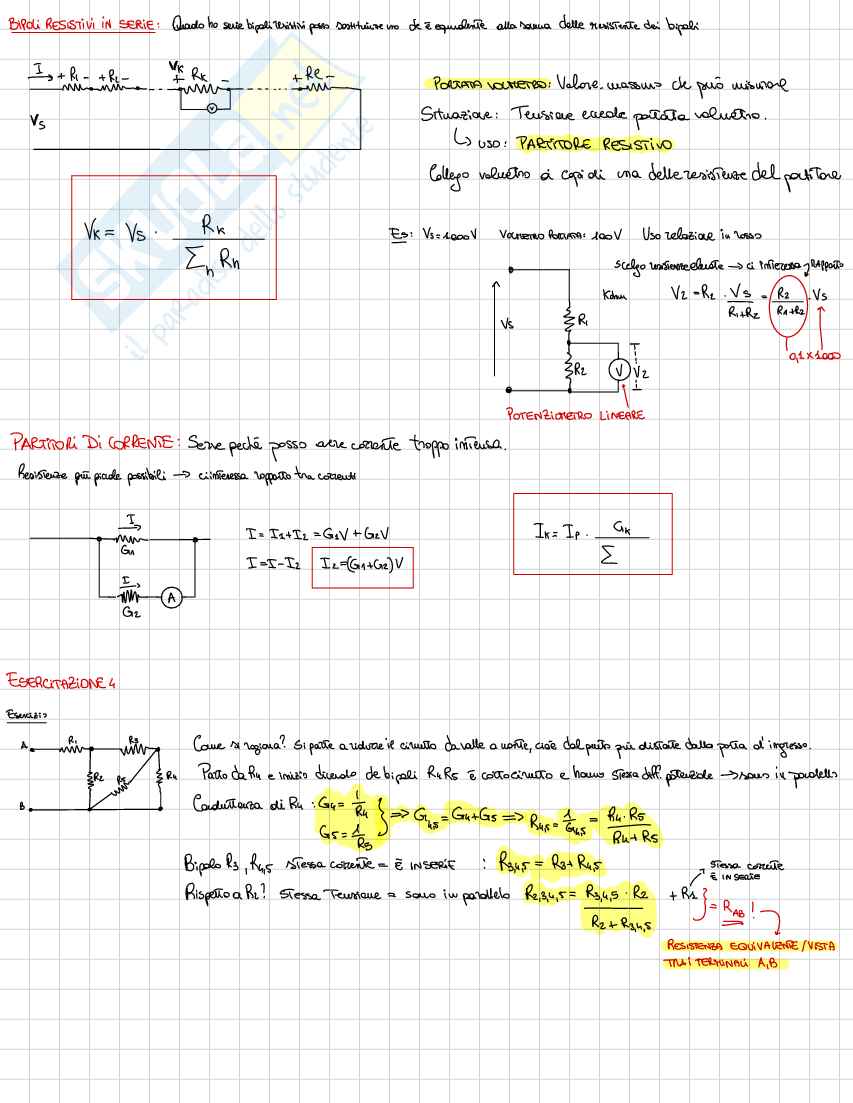 BIPOLI RESISTIVI IN SERIE: Quado ho serie bipoli resistivi posso sostituirne uno che è equivalente alla somma delle resistenze dei bipoli
I + R1 - + R2 - VK + RK - + Re -
V
VS
PORTATA VOLMETRO: Valore massimo che può misurare
Situazione: Tensione eccede portata voltmetro.
↳ USO: PARTITORE RESISTIVO
Collego voltmetro ai capi di una delle resistenze del partitore
VK = VS · RK / Σn Rn
ES: VS=1000V VOLTMETRO PORTATA: 100V Uso relazione in rosso
Scelgo resistenze elevate → ci interessa rapporto
V2 = R2 · VS / R1+R2 = R2 / R1+R2 · VS
0,1 x 1000
VS R1 R2 V V2
POTENZIOMETRO LINEARE
PARTITORI DI CORRENTE: Serve perché posso avere corrente troppo intensa.
Resistenze più piccole possibili → ci interessa rapporto tra correnti
I G1
I G2 A
I = I1+I2 = G1V + G2V
I = I - I2 I2=(G1+G2)V
IK = IP · GK / Σ
ESERCITAZIONE 4
Esercizio
A R1 R3 R2 R5 R4 B
Come si ragiona? Si parte a ridurre il circuito da valle a monte, cioè dal punto più distante dalla porta d'ingresso.
Parto da R4 e inizio dicendo che bipoli R4 R5 è cortocircuito e hanno stessa diff. potenziale → sono in parallelo
Conduttanza di R4: G4 = 1/R4
G5 = 1/R5 } ⇒ G4,5 = G4+G5 ⇒ R4,5 = 1/G4,5 = R4·R5 / R4+R5
Bipolo R3, R4,5 stessa corrente = È IN SERIE : R3,4,5 = R3+R4,5
Rispetto a R2? Stessa Tensione = sono in parallelo R2,3,4,5 = R3,4,5 · R2 / R2 + R3,4,5 + R1 } = RAB !
STESSA CORRENTE
È IN SERIE
RESISTENZA EQUIVALENTE/VISTA
TRA I TERMINALI A,B
SKUOLA.net
il paradiso dello studente